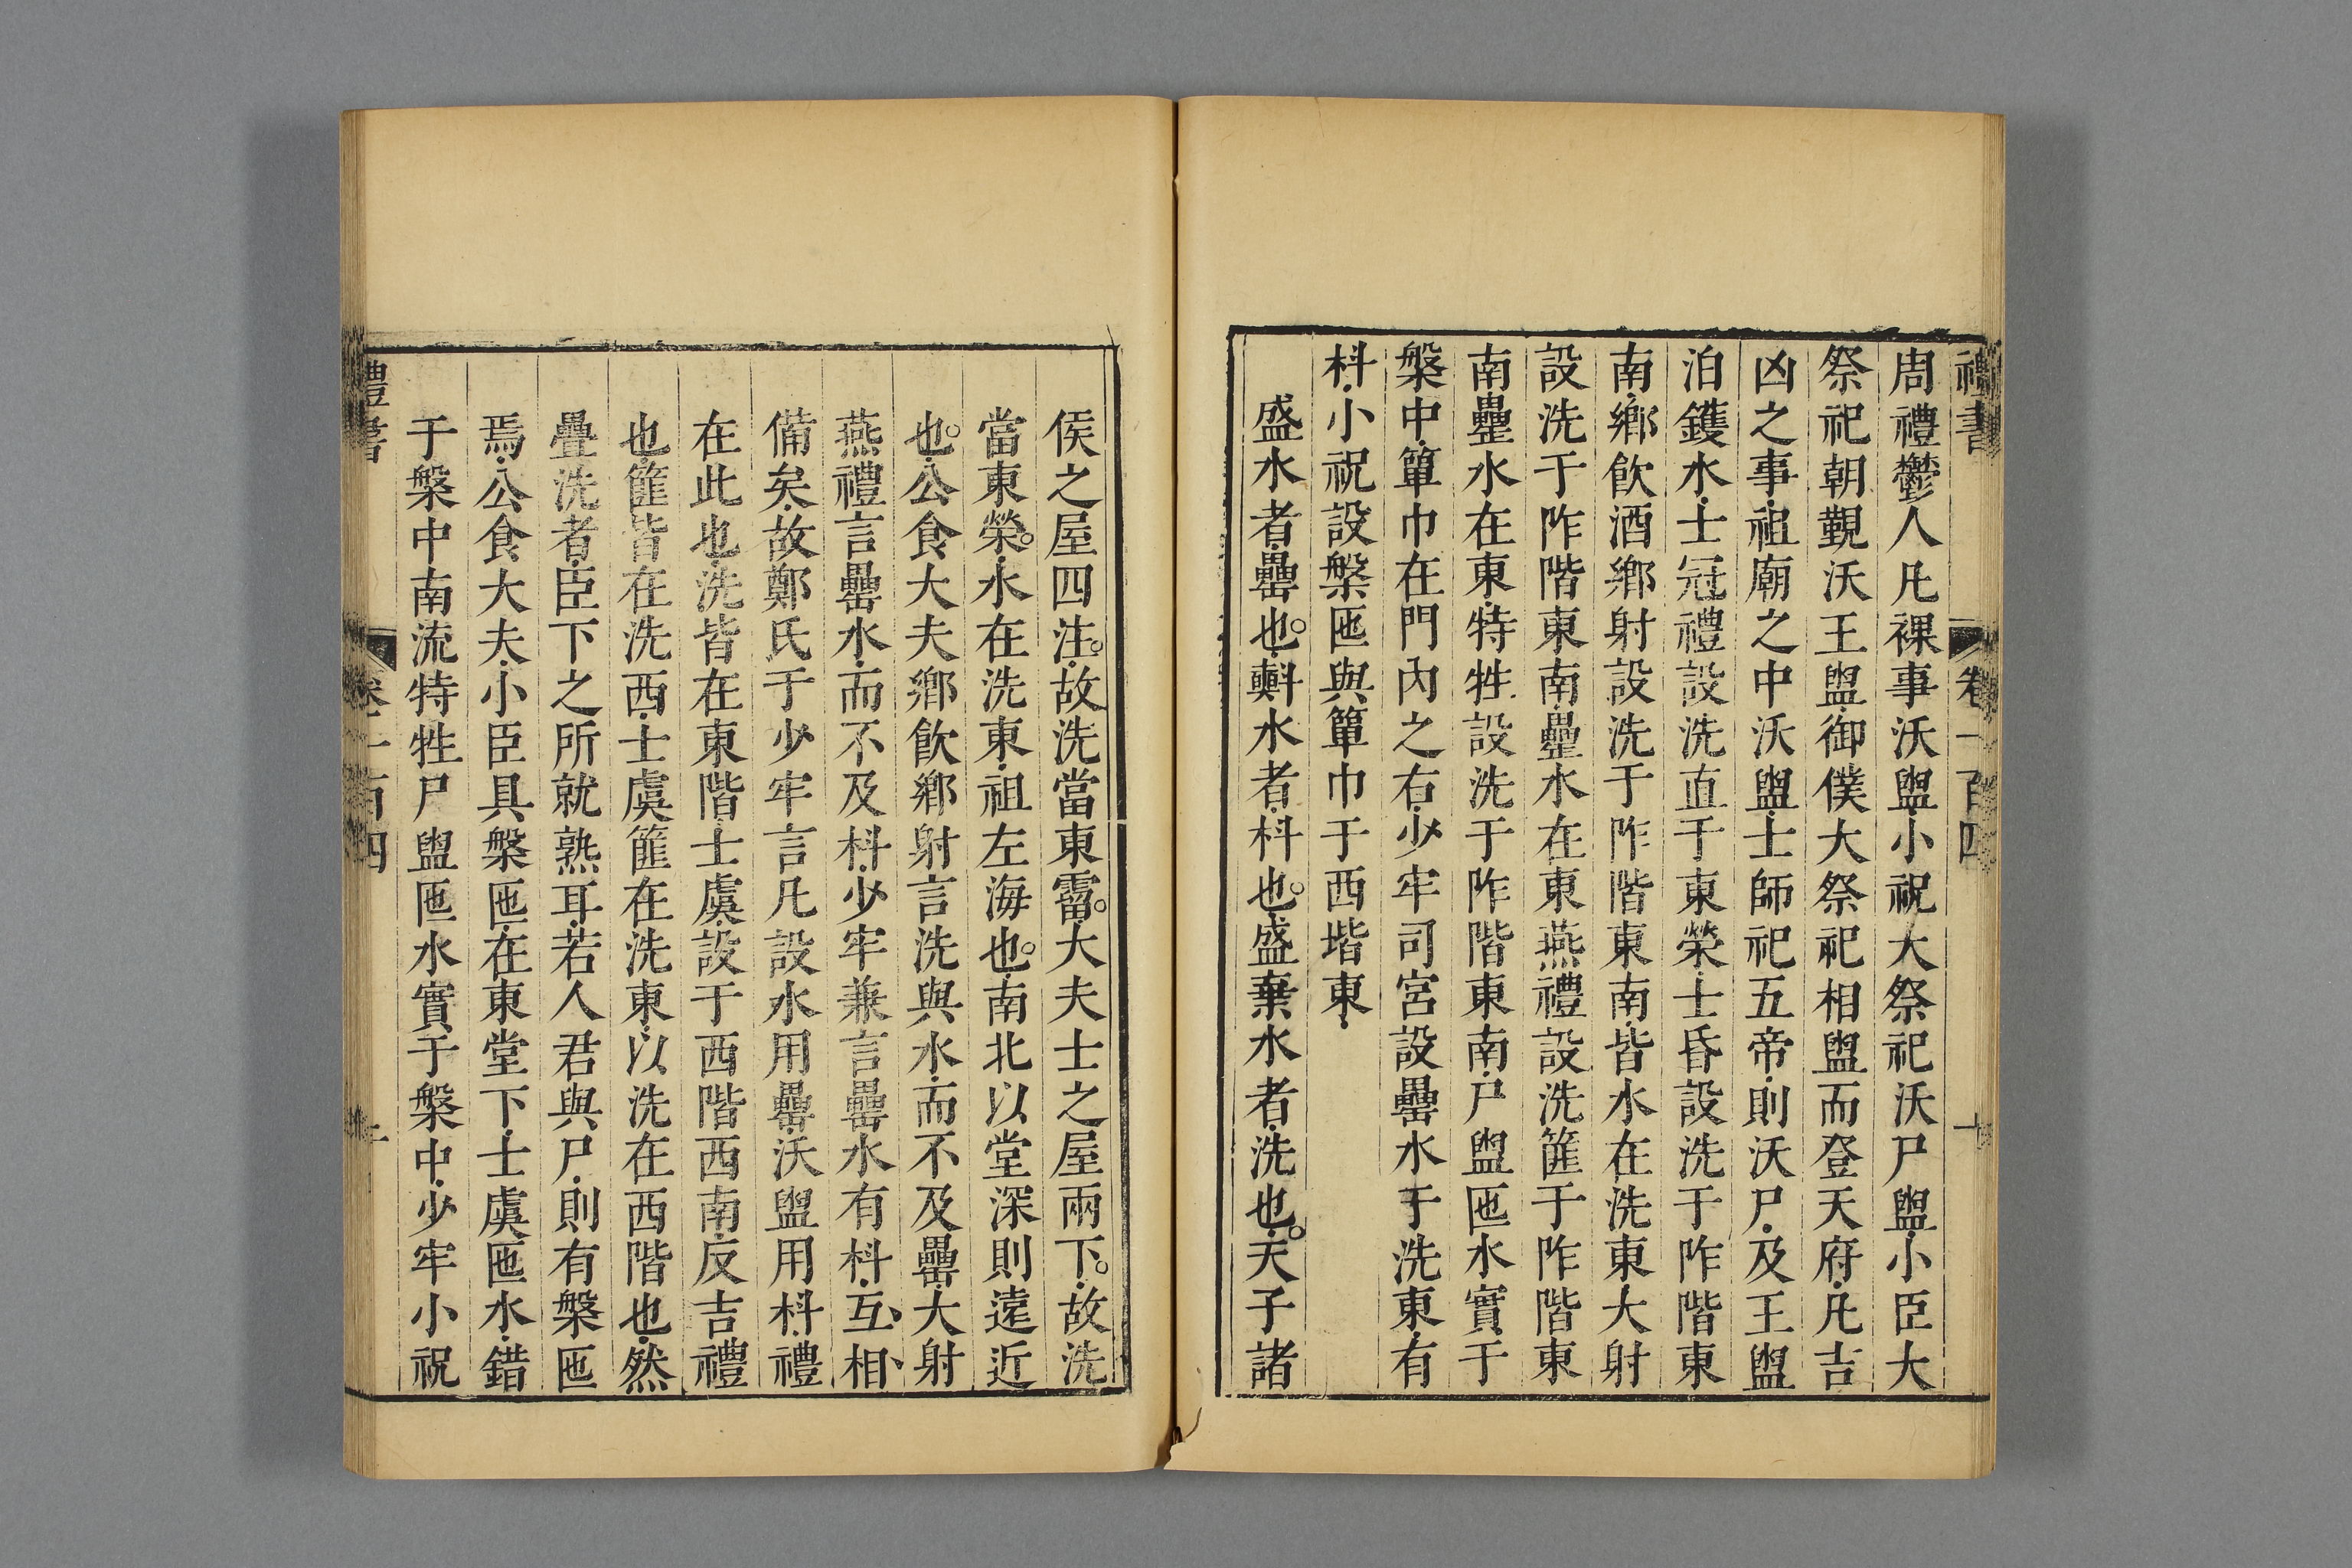 禮書 卷一百四 十
周禮鬱人凡裸事沃盥小祝大祭祀沃尸盥小臣大
祭祀朝覲沃王盥御僕大祭祀相盥而登天府凡吉
凶之事祖廟之中沃盥士師祀五帝則沃尸及王盥
洎鑊水士冠禮設洗直于東榮士昏設洗于阼階東
南鄉飲酒鄉射設洗于阼階東南皆水在洗東大射
設洗于阼階東南罍水在東燕禮設洗篚于阼階東
南罍水在東特牲設洗于阼階東南尸盥匜水實于
槃中簞巾在門內之右少牢司宮設罍水于洗東有
枓小祝設槃匜與簞巾于西堦東
盛水者罍也㪺水者枓也盛棄水者洗也天子諸
侯之屋四注故洗當東霤大夫士之屋兩下故洗
當東榮水在洗東祖左海也南北以堂深則遠近
也公食大夫鄉飲鄉射言洗與水而不及罍大射
燕禮言罍水而不及枓少牢兼言罍水有枓互相
備矣故鄭氏于少牢言凡設水用罍沃盥用枓禮
在此也洗皆在東階士虞設于西階西南反吉禮
也篚皆在洗西士虞篚在洗東以洗在西階也然
罍洗者臣下之所就熟耳若人君與尸則有槃匜
焉公食大夫小臣具槃匜在東堂下士虞匜水錯
于槃中南流特牲尸盥匜水實于槃中少牢小祝
禮書 卷一百四